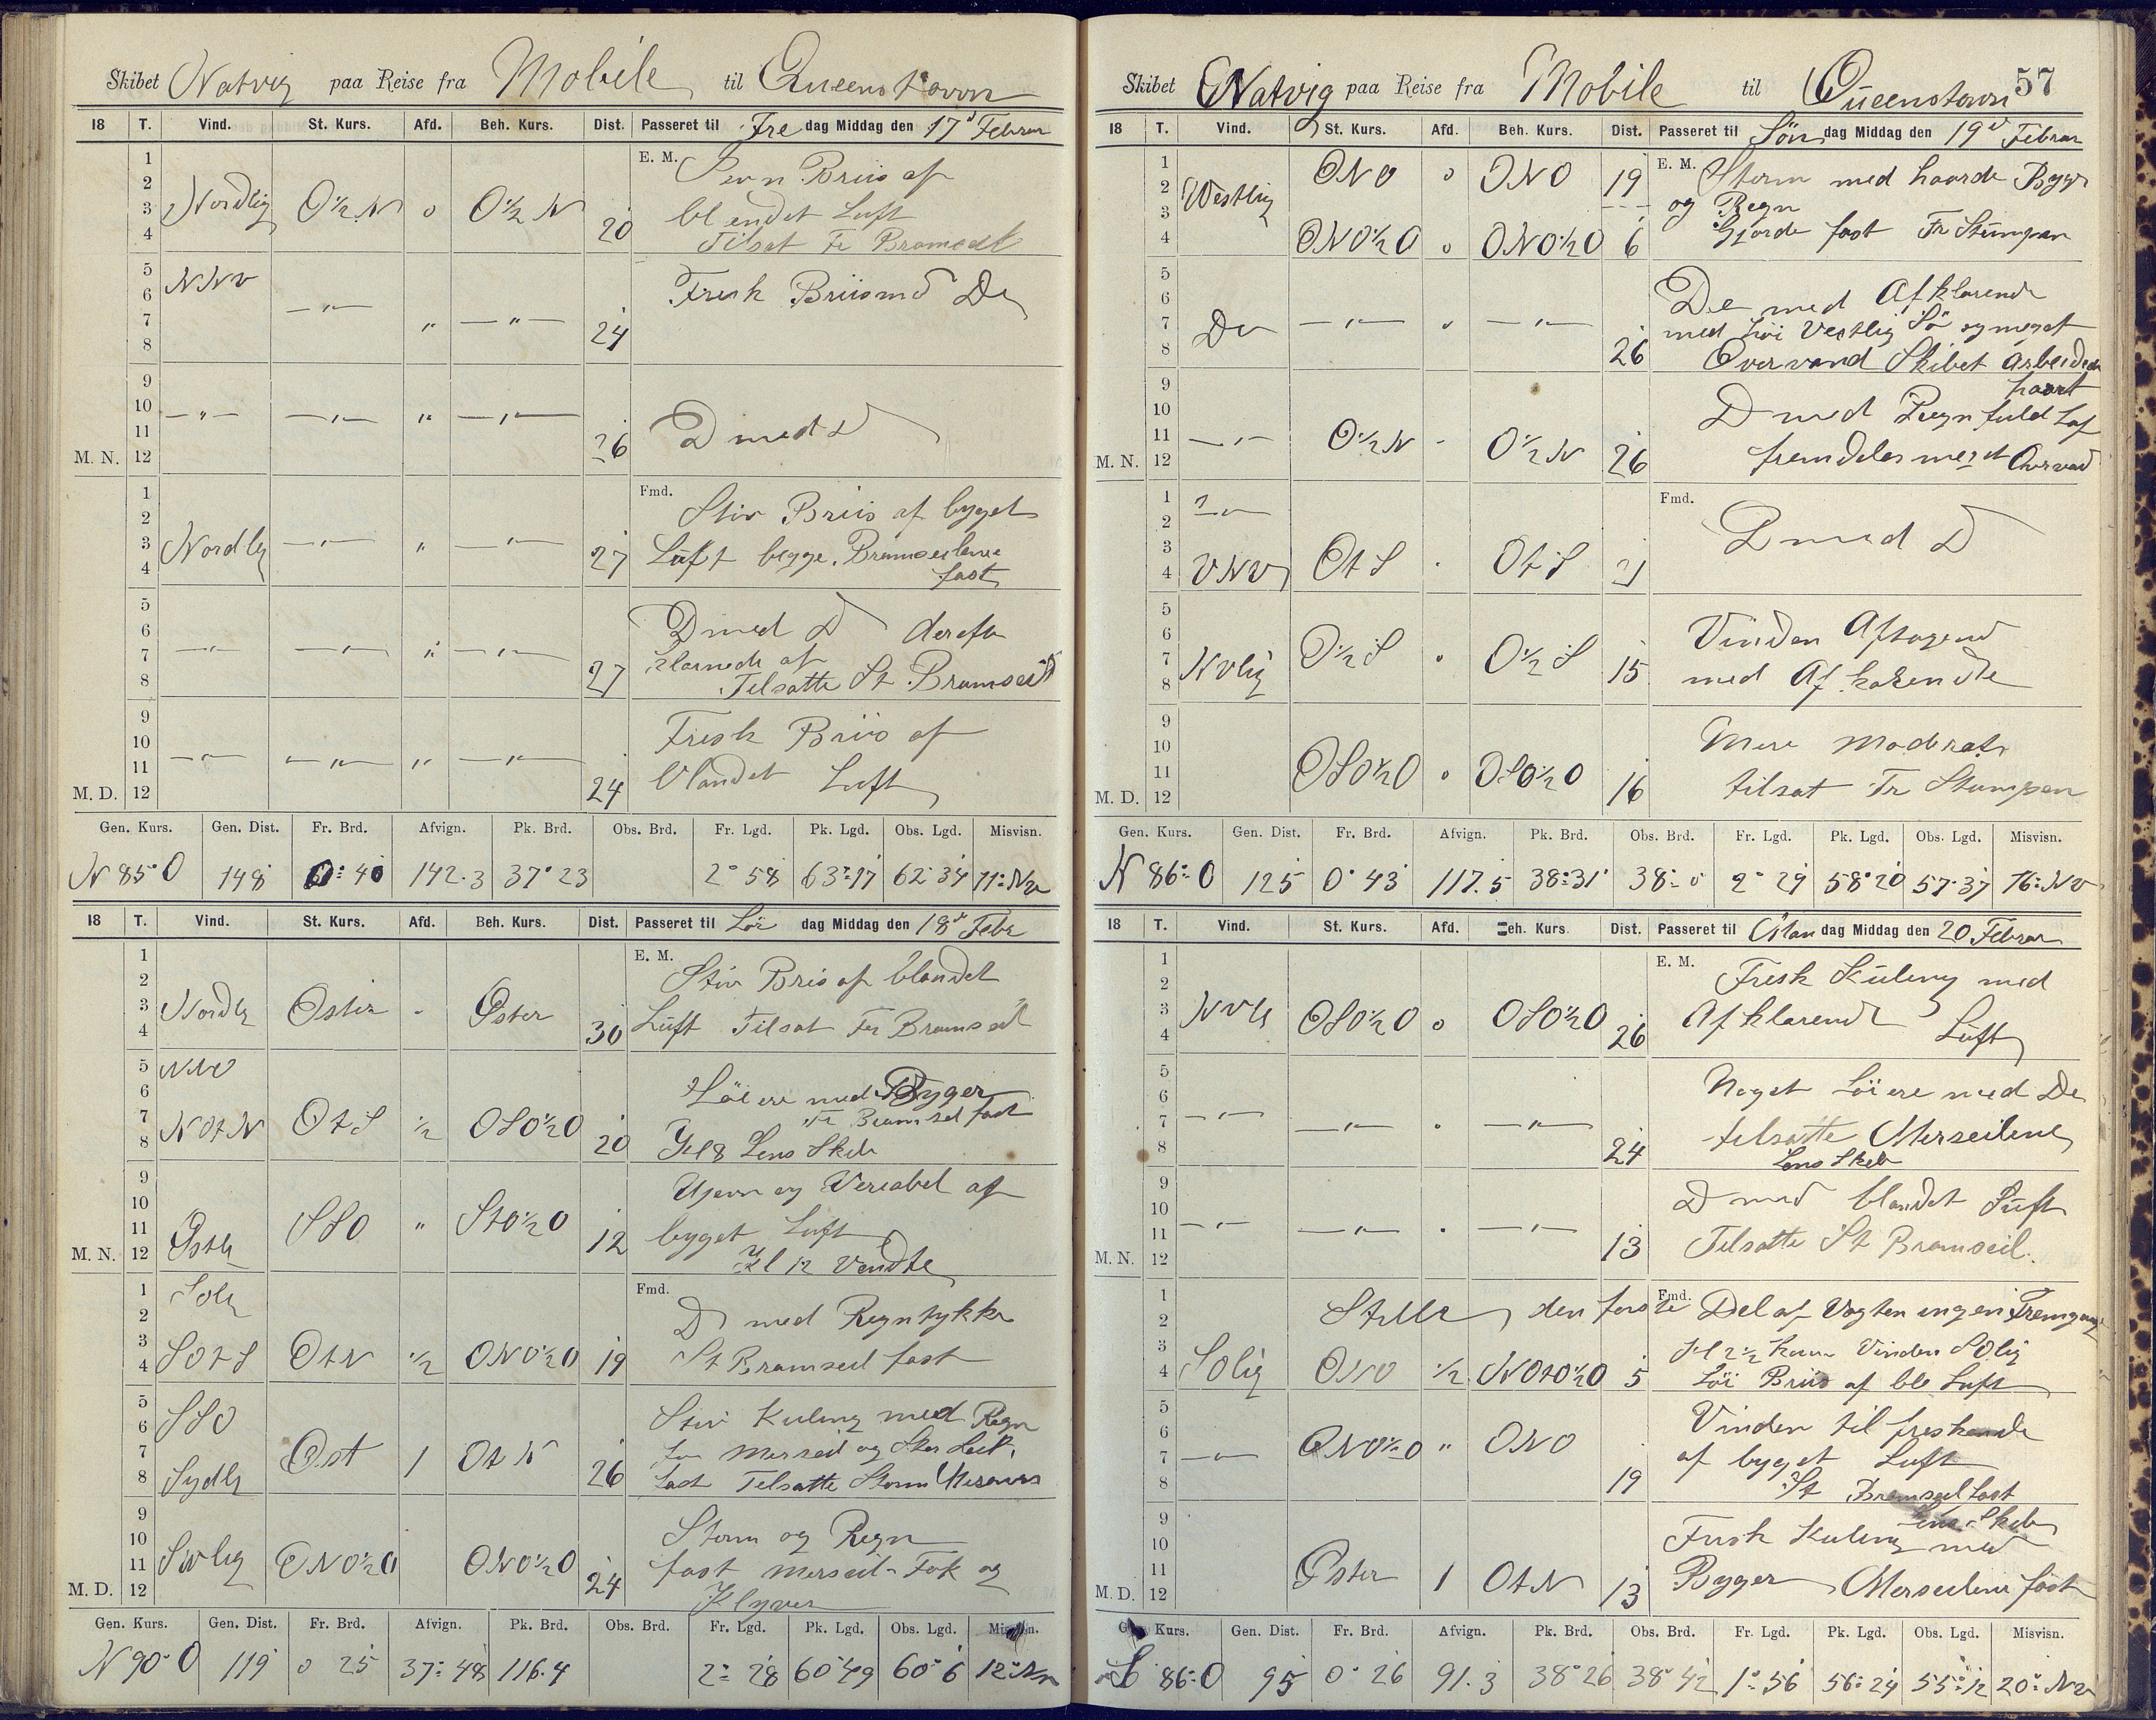 Skibet Natvig paa Reise fra Mobile til Queenstown
18 T. Vind. St. Kurs. Afd. Beh. Kurs. Dist. Passeret til Fre dag Middag den 17d Februar
1 E. M. Jevn Briis af
2
3 Nordlig O½N o O½N 20 blendet Luft
4 Tilsat Fr Bramseil
5 NNV Fresk Briis md Do
6
7 —"— " —"— 24
8
9
10 —"— —"— " —"— 26 D med D
11
M. N. 12
1 Fmd. Stiv Briis af byget
2
3 Nordlig —"— " —"— 27 Luft begge Bramseilene
4 fast
5
6 D med D derefter
7 —"— —"— " —"— 27 klarnede af
8 Tilsatte St Bramseil
9
10 Fresk Briis af
11 —"— —"— " —"— 24 blandet Luft
M. D. 12
Gen. Kurs. Gen. Dist. Fr. Brd. Afvign. Pk. Brd. Obs. Brd. Fr. Lgd. Pk. Lgd. Obs. Lgd. Misvisn.
N 85° O 148 0° 40 142.3 37° 23 2° 58 63° 17 62° 34 11° Nv
18 T. Vind. St. Kurs. Afd. Beh. Kurs. Dist. Passeret til Lör dag Middag den 18d Febr
1 E. M. Stiv Bris af blandet
2
3 Nordlg Oster - Øster 30 Luft Tilsat Fr Bramseil
4
5 NNO
6 Löiere med Byger
7 NOtN OtS ½ OSO½O 20 Fr Bramseil fast
8 Kl 8 Lens Skib
9
10 Ujevn og Veriabel af
11 Østlg SSO " StO½O 12 byget Luft
M. N. 12 Kl 12 Vendte
1 Solg Fmd. D med Regntykke
2
3 SOtS OtN ½ ONO½O 19 St Bramseil fast
4
5 SSO Stiv Kuling med Regn
6
7 Sydlg Ost 1 OtN 26
8 fast Tilsatte Storm
9
10 Storm og Regn
11 Svlig ONO½O ONO½O 24 fast Merseil-Fok og
M. D. 12 Klyver
Gen. Kurs. Gen. Dist. Fr. Brd. Afvign. Pk. Brd. Obs. Brd. Fr. Lgd. Pk. Lgd. Obs. Lgd. Misvisn.
N 90° O 119 0 25 37° 48 116.4 2° 28 60° 49 60° 6 12° Nv
Skibet Natvig paa Reise fra Mobile til Queenstown 57
18 T. Vind. St. Kurs. Afd. Beh. Kurs. Dist. Passeret til Sön dag Middag den 19d Februar
1 ONO o ONO 19 E. M. Storm med haarde Byger
2 Vestlig og Regn
3
4 ONO½O o ONO½O 6 Gjorde fast Fr Stumpen
5
6 Do med Afklarende
7 Do —"— " —"— 26 med höi Vestlig Sö og meget
8 Overvand Skibet Arbeidede
9 haart
10 D med Regnfuld Luft
11 —"— O½N - O½N 26
M. N. 12 fremdeles meget Overvand
1 —"— Fmd. D med D
2
3
4 VNV OtS . OtS 21
5
6 Vinden Aftagend
7 Nvlig O½S " O½S 15
8 med Afklarende
9
10 Mere Moderat
11 OSO½O o OSO½O 16 tilsat Fr Stumpen
M. D. 12
Gen. Kurs. Gen. Dist. Fr. Brd. Afvign. Pk. Brd. Obs. Brd. Fr. Lgd. Pk. Lgd. Obs. Lgd. Misvisn.
N 86° O 125 0° 43 117.5 38° 31' 38° 0 2° 29 58° 20 57° 37 16° Nv
18 T. Vind. St. Kurs. Afd. Beh. Kurs. Dist. Passeret til Man dag Middag den 20 Februar
1 E. M. Fresk Kuling med
2
3 Nvlg OSO½O o OSO½O 26 Afklarende Luft
4
5
6 Noget Löiere med Do
7 —"— —"— " —"— 24 tilsatte Merseilene
8 Lens Skib
9
10 D med blandet Luft
11 —"— —"— " —"— 13 Tilsatte St Bramseil.
M. N. 12
1 Fmd. Stille den første Del af Vagten ingen Fremgang
2
3 Kl 2½ Kom Vinden SOlig
4 SOlig ONO ½ NOtO½O 5 Löi Briis af bl Luft
5
6 Vinden til freskende
7 —"— ONO½O " ONO 19 af byget Luft
8 St Bramseil fast
9 Lens Skib
10 Fresk Kuling med
11 Øster 1 OtN 13 Bygger Merseilene fast
M. D. 12
Gen. Kurs. Gen. Dist. Fr. Brd. Afvign. Pk. Brd. Obs. Brd. Fr. Lgd. Pk. Lgd. Obs. Lgd. Misvisn.
S 86° O 95 0° 26 91.3 38° 26 38° 42 1° 56 56° 24 55° 12 20° Nv